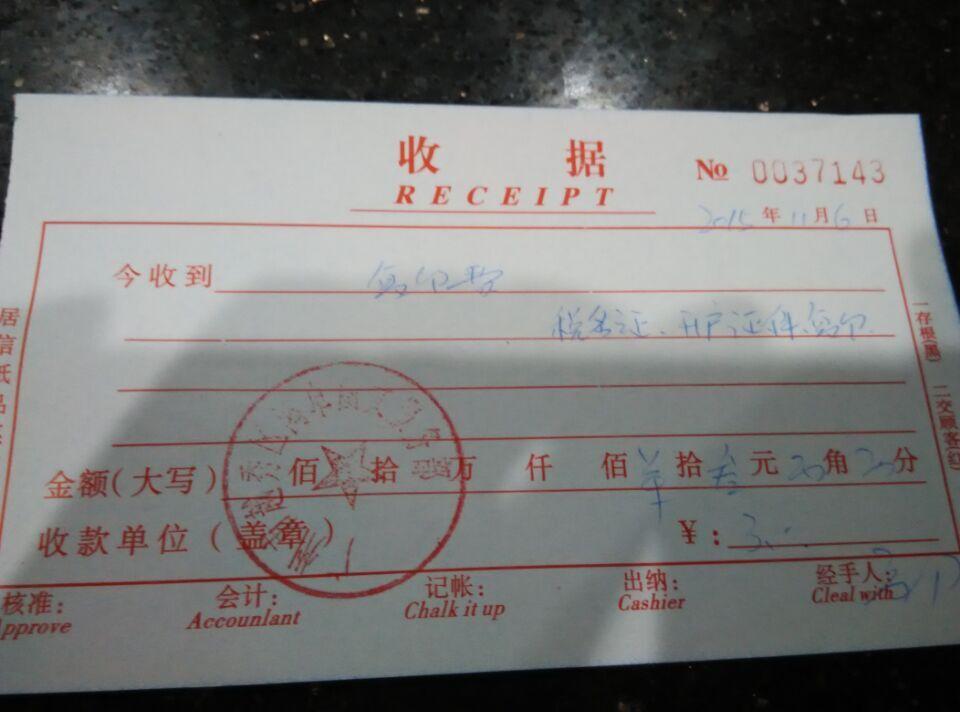 收 据
RECEIPT
№ 0037143
2015 年 11 月 6 日
今收到 复印费
税务证、开户证件复印
金额(大写) 佰 拾 万 仟 佰 拾 叁 元 角 分
收款单位(盖章) ¥:3
核准: 会计: 记帐: 出纳: 经手人:
Approve Accounlant Chalk it up Cashier Cleal with
一存根(黑) 二交顾客(红)
居信纸品